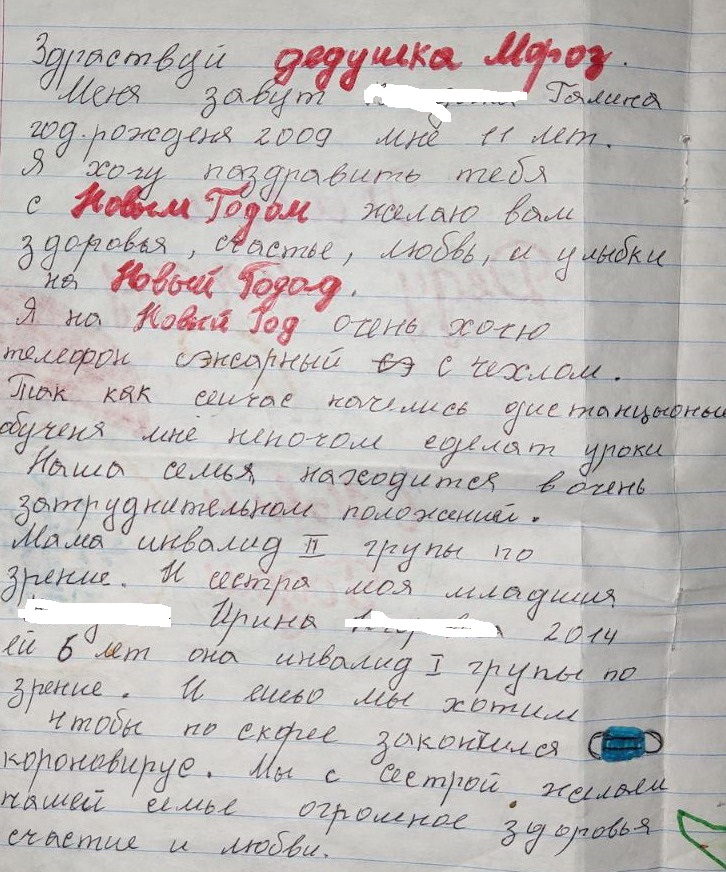 Здраствуй дедушка Мороз.
Меня завут Галина
год.рожденя 2009 мне 11 лет.
Я хочу паздравить тебя
с Новым Годом желаю вам
здоровья, счастье, любвь, и улыбки
на Новый Годад.
Я на Новый Год очень хочю
телефон сэнсарный с чехлом.
Так как сейчас начелись дистанцыоные
обученя мне неночом сделат уроки
Наша семья находится в очень
затруднительном положений.
Мама инвалид II групы по
зрение. И сестра моя младшия
Ирина 2014
ей 6 лет она инвалид I групы по
зрение. И ешьо мы хотим
чтобы по скорее закончился
короновирус. Мы с сестрой желаем
нашей семье огромное здоровья
счастие и любви.